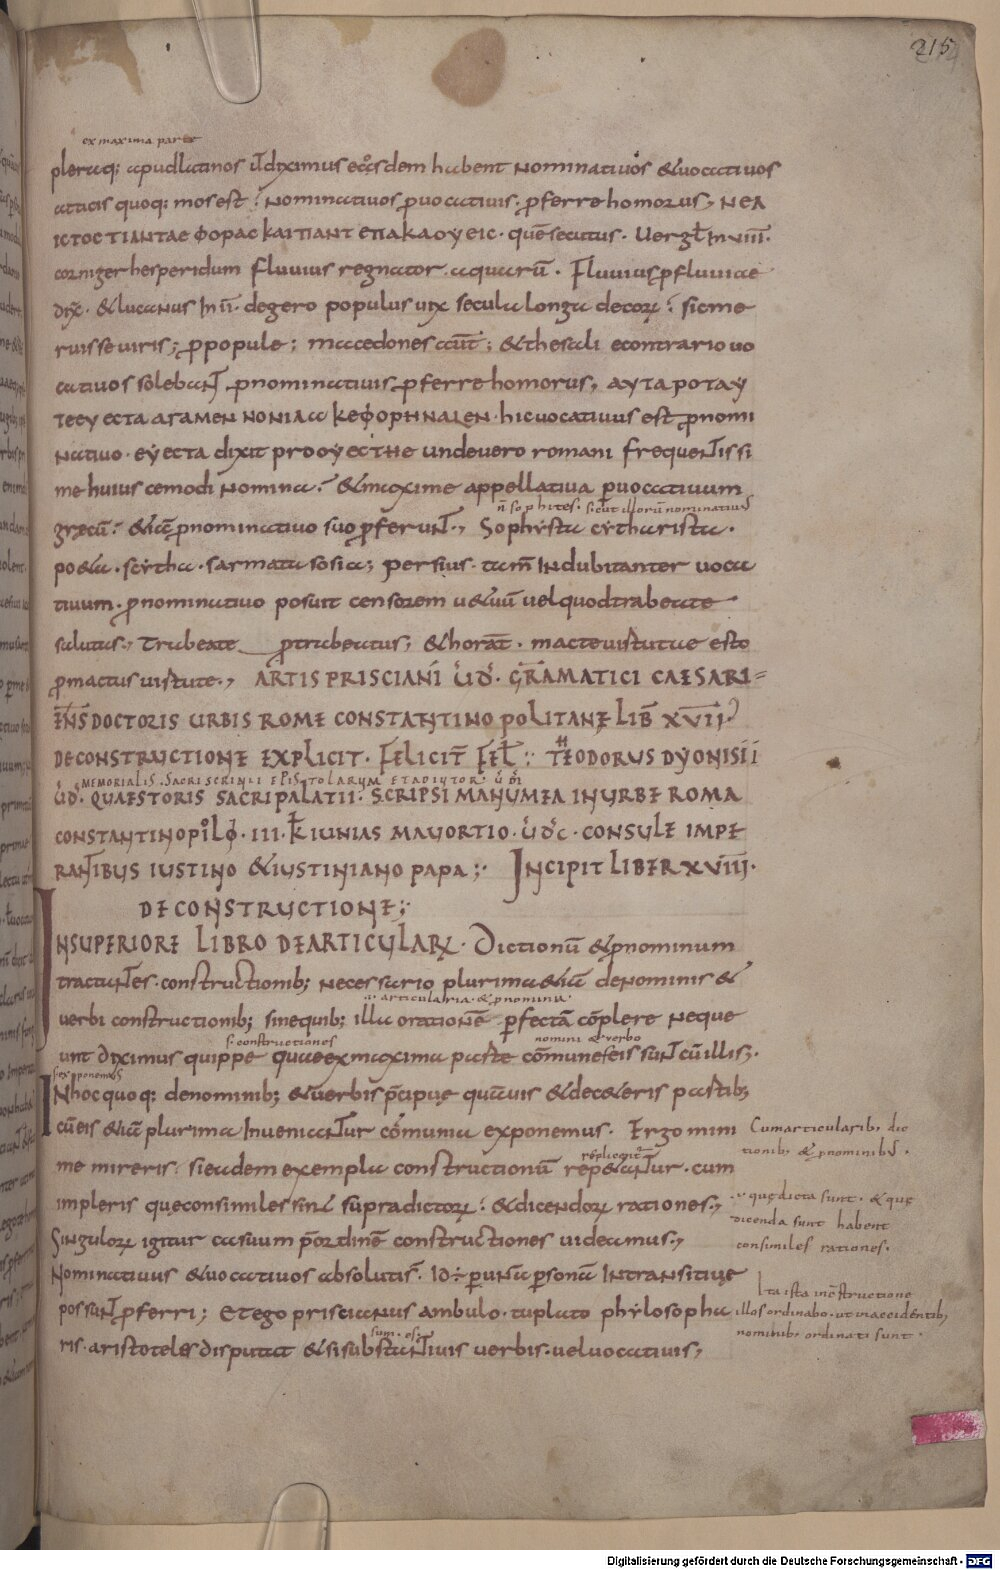 215
ex maxima parte
pleraq; apud latinos ut diximus eosdem habent nominatiuos & uocatiuos
atticis quoq; mos est nominatiuos p uocatiuis pferre homorus, ΝΕΛ
ΙϹΤΟϹ ΤΙΑΝΤΑΕ ΦΟΡΑϹ ΚΑΙΠΑΝΤ ΕΠΑΚΑΟΥΕΙϹ · quē secutus · Uergł in VIII ·
corniger hesperidum fluuius regnator aquarū · Fluuius p fluuiae
dix̄ · & lucanus In II · degero populus uix secula longa decorꝝ sic me
ruisse uiris; p popule; macedones aūt; & thesali econtrario uo
catiuos soleban p nominatiuis pferre homorus, ΑΥΤΑΡΟΤΑΥ
ΤΕΕΥΕϹΤΑ ΑΓΑΜΕΝ ΝΟΝΙΑΑ ΚΕΦΟΡΗΝΑΛΕΝ · hic uocatiuus est p nomi
natiuo · ΕΥΕϹΤΑ dixit pro ΟΥΕϹΤΗΕ unde uero romani frequentissi
me huiuscemodi nomina & maxime appellatiua p uocatiuum
n̄ sophites · sicut illorū nominatiuus
grecū & iā p nominatiuo suo pferunt, Sophysta cytharista ·
po&a · scytha · sarmata sosia; persius · tam̄ Indubitanter uoca
tiuum · p nominatiuo posuit censorem ue tuū uel quod trabeate
salutas, Trabeate p trabeatus; & horat̄ · macte uirtutue esto
p mactus uirtute, ARTIS PRISCIANI U̅D̅ · GRAMATICI CAESARI=
ENS DOCTORIS URBIS ROME CONSTANTINOPOLITANE LIB̄ XVII
DE CONSTRUCTIONE EXPLICIT · FELICIT̄ FEL̄ :: THEODORUS DYONISII
MEMORIALIS · SACRI SCRINII EPISTOLARUM ET ADIUTOR · U̅ D̅I
U̅D̅ · QUAESTORIS SACRI PALATII · SCRIPSI MANU MEA IN URBE ROMA
CONSTANTINOPOL · III · K̄ IUNIAS MAUORTIO · U̅D̅C · CONSULE IMPE
RANTIBUS IUSTINO & IUSTINIANO PAPA ; INCIPIT LIBER XVIII ·
DE CONSTRUCTIONE;
INSUPERIORE LIBRO DE ARTICULARꝝ · Dictionū & pnominum
tractantes · constructionib; necessario plurima & iā de nominis &
·articularia · & pnomina·
uerbi constructionib; sine quib; illa orationē pfectā cōplere neque
s· constructiones    nomini & uerbo
unt diximus quippe quae ex maxima parte cōmunes eis sunt cū illis;
s· exponemus
In hoc quoq; de nominib; & uerbis p̄cipuę quāuis & de c&eris partib;
cū eis & iā plurima Inueniantur cōmunia exponemus · Ergo mini
replicent̄
me mireris sieadem exempla constructionū rep&antur · cum
impleris que consimiles sint supradictorꝝ & dicendorꝝ rationes,
Singulorꝝ igitur casuum p̄ordinē constructiones uideamus,
Nominatiuus & uocatiuos absolutis · Id÷ p unā psonā Intransitiuę
possunt pferri; Et ego priscianus ambulo · tu plato phylosopha
sum · es·
ris · aristoteles disputat & si substantiuis uerbis · uel uocatiuis,
Cum articularib; dic
tionib; & pnominib;·
·quę dicta sunt · & quę
dicenda sunt habent
consimiles rationes ·
Ita ista in cōstructione
illos ordinabo · ut in accidentib;
nominib; ordinati sunt ·
Digitalisierung gefördert durch die Deutsche Forschungsgemeinschaft - DFG